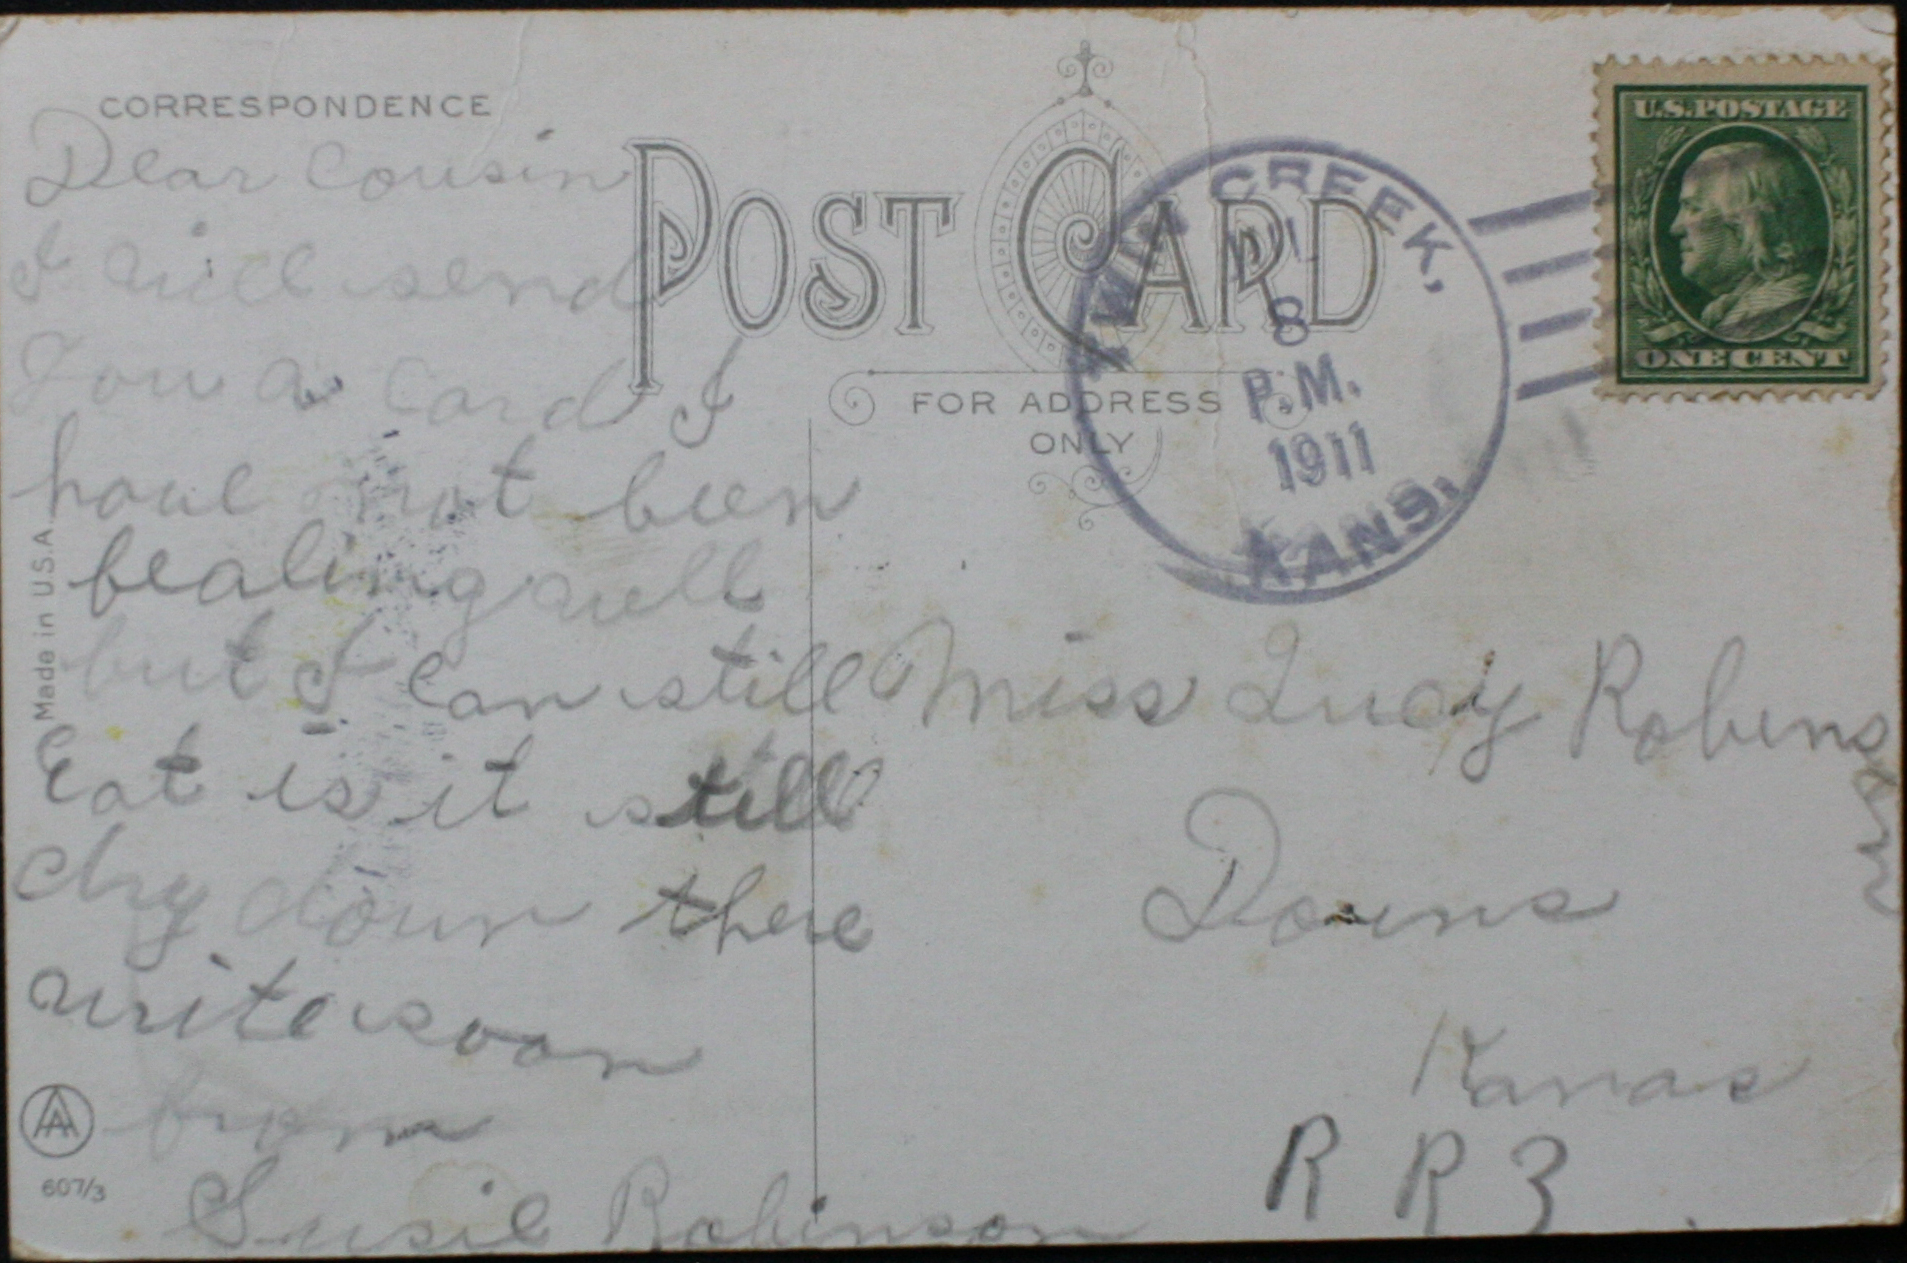 CORRESPONDENCE
Dear Cousin
I will send
You a card I
have not been
fealing well
but I can still
Eat is it still
dry down there
write soon
from
Susie Robinson
Made in U.S.A.
607/3
POST CARD
FOR ADDRESS
ONLY
TWIN CREEK,
JUL
8
P.M.
1911
KANS.
U.S. POSTAGE
ONE CENT
Miss Lucy Robinson
Downs
Kansas
R R 3